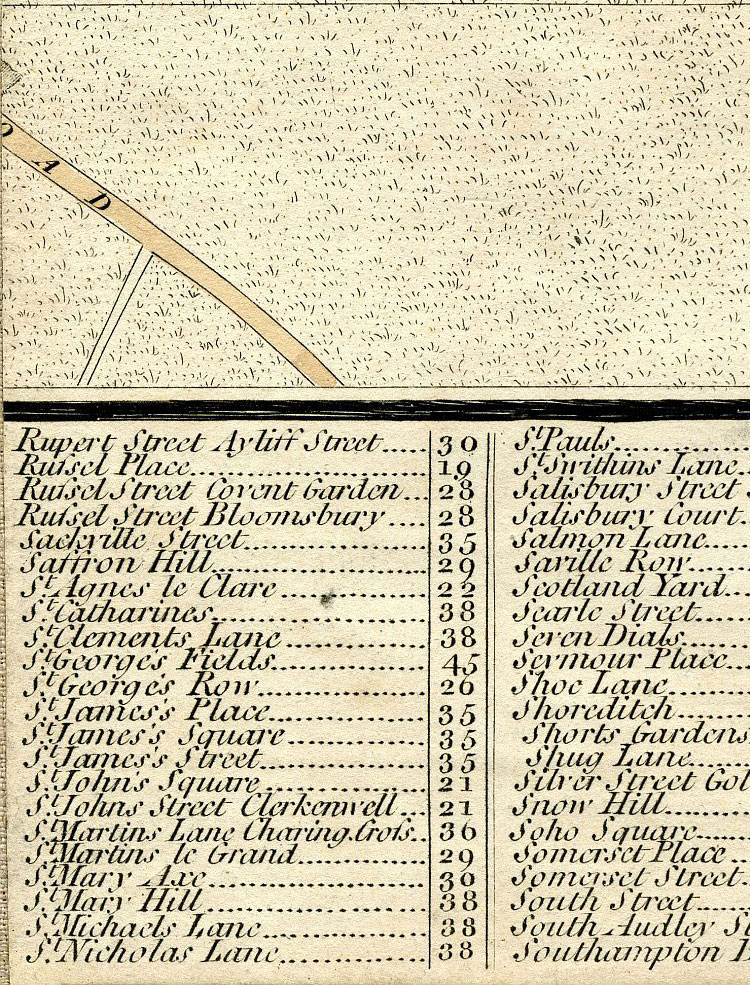 O A D
Rupert Street Ayliff Street..... 30
Ruſsel Place................ 19
Ruſsel Street Covent Garden... 28
Ruſsel Street Bloomsbury.... 28
Sackville Street............. 35
Saffron Hill................ 29
St Agnes le Clare............ 22
St Catharines................ 38
St Clements Lane............. 38
St George's Fields............ 45
St George's Row.............. 26
St James's Place............. 35
St James's Square............ 35
St James's Street............ 35
St John's Square............. 21
St Johns Street Clerkenwell... 21
St Martins Lane Charing Croſs.. 36
St Martins le Grand.......... 29
St Mary Axe................. 30
St Mary Hill................ 38
St Michaels Lane............. 38
St Nicholas Lane............. 38
St Pauls................
St Swithins Lane.
Salisbury Street
Salisbury Court.
Salmon Lane...
Saville Row.....
Scotland Yard...
Searle Street.....
Seven Dials......
Seymour Place...
Shoe Lane.......
Shoreditch......
Shorts Gardens
Shug Lane......
Silver Street Gol
Snow Hill.......
Soho Square.....
Somerset Place..
Somerset Street.
South Street.....
South Audley St
Southampton